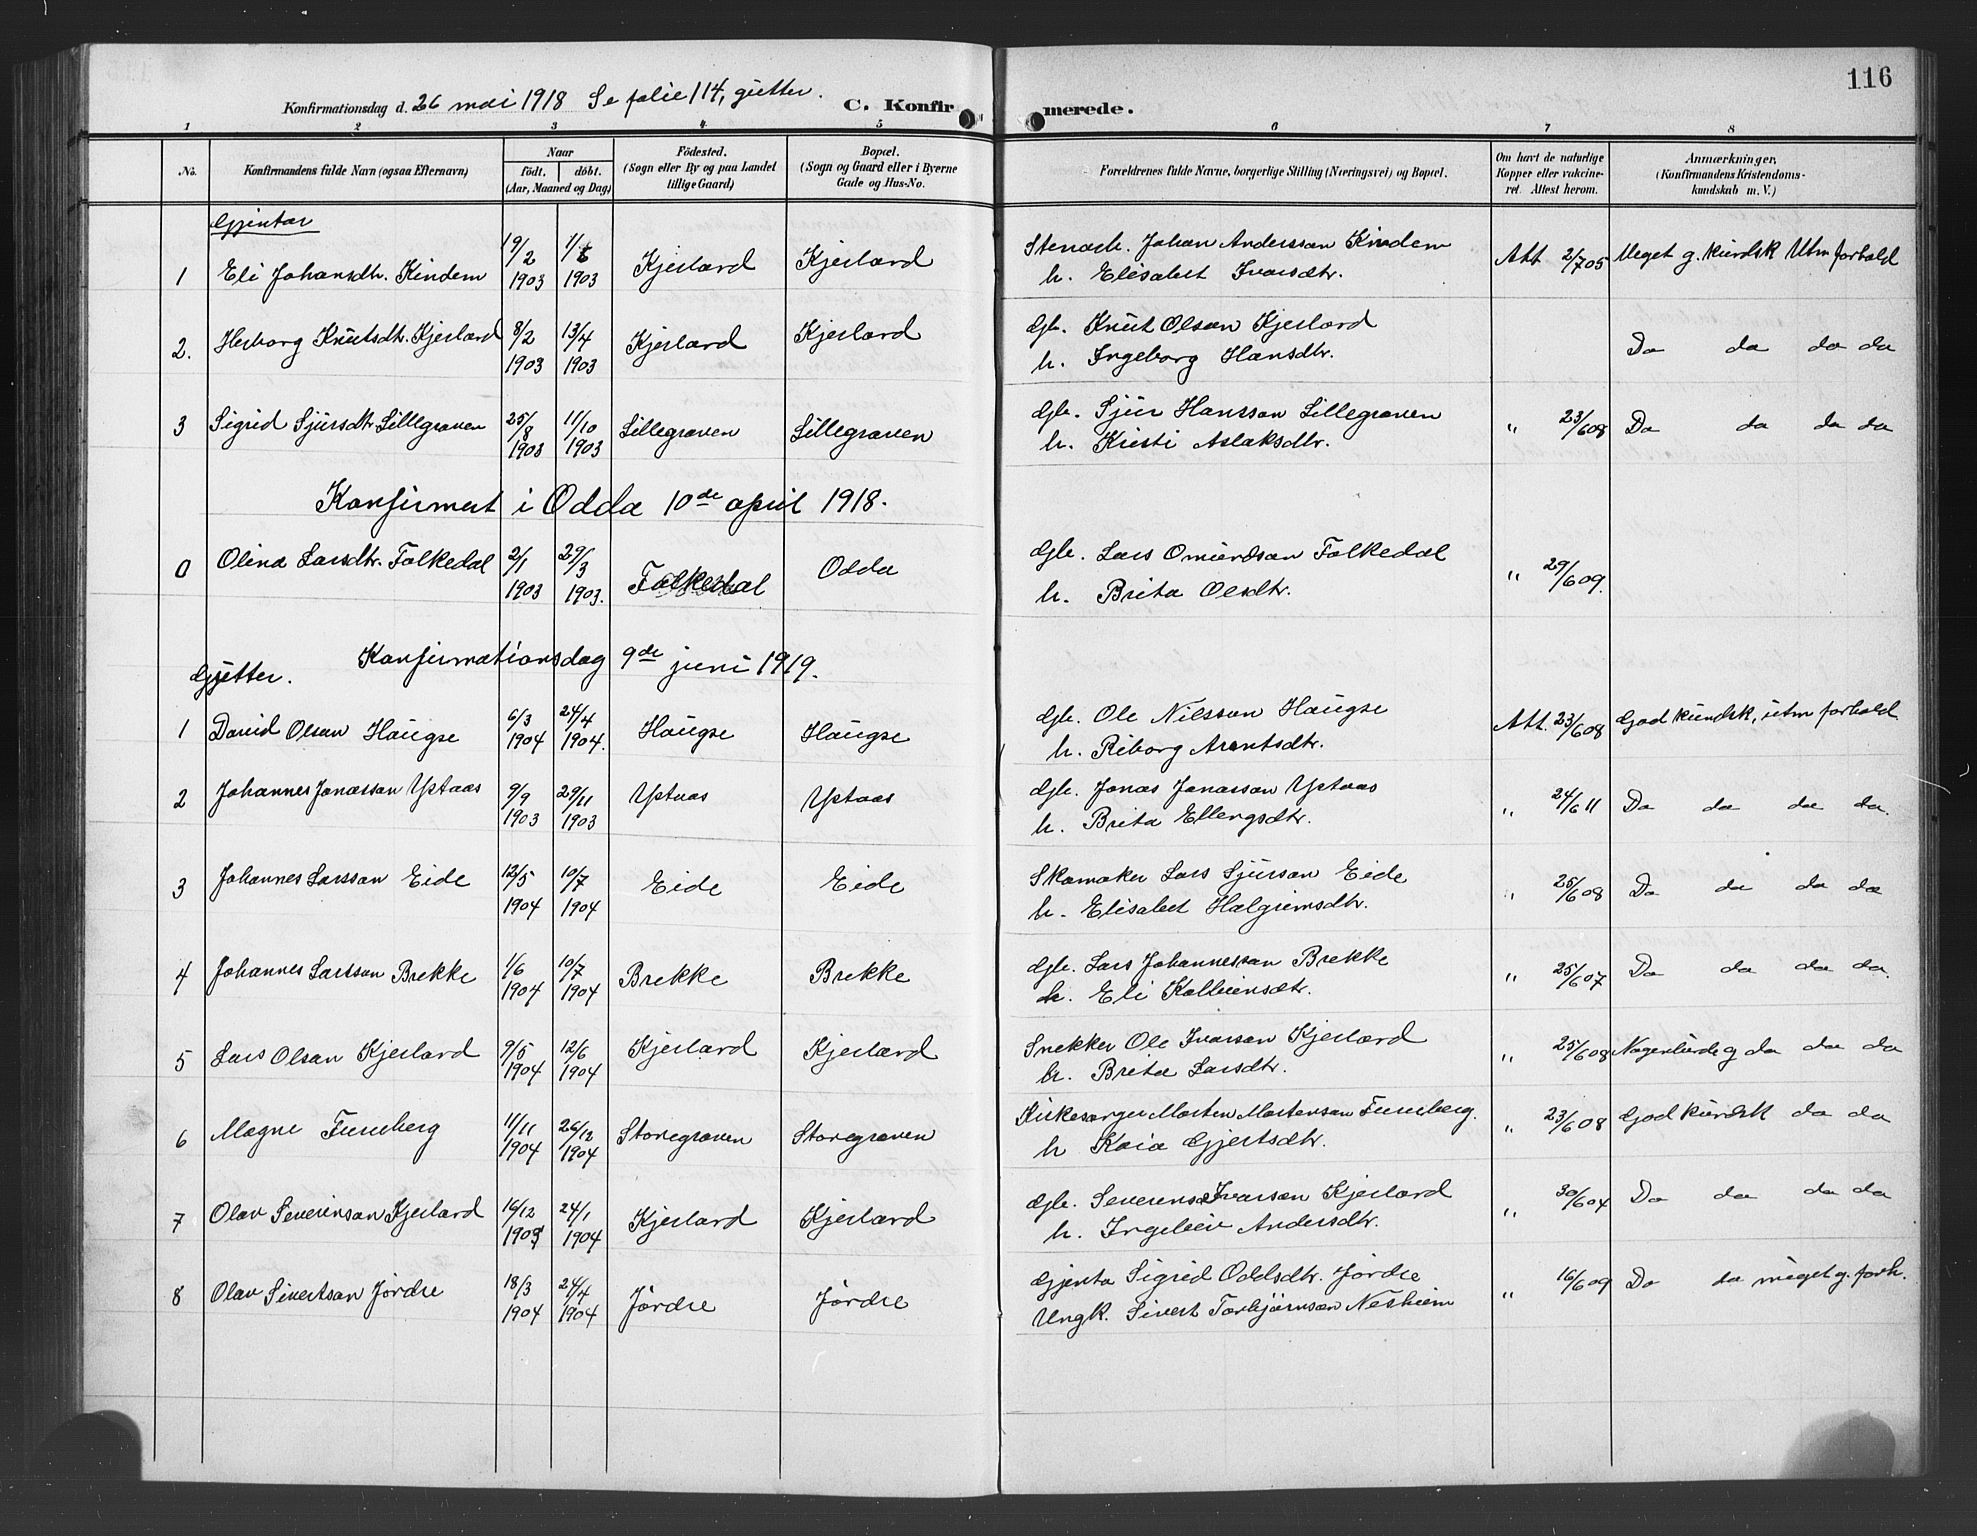 116
Konfirmationsdag d. 26 mai 1918 Se folie 114, gutter. C. Konfirmerede.
1 2 3 4 5 6 7 8
No.
Konfirmandens fulde Navn (ogsaa Efternavn)
Naar
födt. döbt.
(Aar, Maaned og Dag)
Födested.
(Sogn eller By og paa Landet
tillige Gaard)
Bopæl.
(Sogn og Gaard eller i Byerne
Gade og Hus-No.
Forældrenes fulde Navne, borgerlige Stilling (Næringsvei) og Bopæl.
Om havt de naturlige
Kopper eller vakcine-
ret. Attest herom.
Anmærkninger,
(Konfirmandens Kristendoms-
kundskab m. V.)
Gjentar
1 Eli Johansdtr. Kindem 19/2 1903 1903 Kjerland Kjerland Johan Anderssan Kindem Att 2/7 05 Meget g. kundsk Utm forhold
h. Elisabet Ivarsdtr.
2. Herborg Knutsdtr. Kjerland 8/2 1903 13/4 1903 Kjerland Kjerland Gb. Knut Olsan Kjerland Do do do do
h. Ingeborg Hansdtr.
3 Sigrid Sjursdtr Lillegraven 25/8 1903 11/10 1903 Lillegraven Lillegraven Gb. Sjur Hanssan Lillegraven " 23/6 08 Do do do do
h. Kristi Aslaksdtr.
Konfirmert i Odda 10de april 1918.
0 Olina Larsdtr. Folkedal 2/1 1903 29/3 1903. Folkedal Odda Gb. Lars Omundsan Folkedal " 29/6 09.
h. Brita Olsdtr.
Konfirmationsdag 9de juni 1919.
Gutter.
1 David Olsan Haugse 6/3 1904 24/4 1904. Haugse Haugse Gb. Ole Nilssan Haugse Att. 23/6 08 God kundsk, utm forhold
h. Riborg Arentsdtr.
2 Johannes Jonassan Ystaas 9/9 1903 29/11 1903 Ystaas Ystaas Gb. Jonas Jonassan Ystaas " 24/6 11 Do do do do.
h. Brita Ellengsdtr.
3 Johannes Larssan Eide 12/5 1904 10/7 1904 Eide Eide Skomaker Lars Sjursan Eide " 25/6 08 Do do do do
h. Elisabet Halgrimsdtr.
4 Johannes Larssan Brekke 1/6 1904 10/7 1904 Brekke Brekke Gb. Lars Johannessan Brekke " 25/6 07 Do do do do.
h. Eli Kolbeinsdtr.
5 Lars Olsan Kjerland 9/5 1904 12/6 1904 Kjerland Kjerland Snekker Ole Ivarsan Kjerland " 25/6 08 g do do do
h. Brita Larsdtr.
6 Magne Furuberg 11/11 1904 26/12 1904 Storegraven Storegraven Kirkesanger Morten Mortensan Furuberg. " 23/6 08 God kundsk do do
h Kaia Gjertsdtr.
7 Olav Severinsan Kjerland 16/12 1903 24/1 1904 Kjerland Kjerland Gb. Ivarsan Kjerland " 30/6 04 Do do do do
h. Ingeleiv Andersdtr.
8 Olav Sivertsan Jördre 18/3 1904 24/4 1904 Jördre Jördre Gjenta Sigrid Oddsdtr. Jördre " 16/6 09 Do do meget g. forh.
Ungk. Sivert Torbjörnsan Neshiem